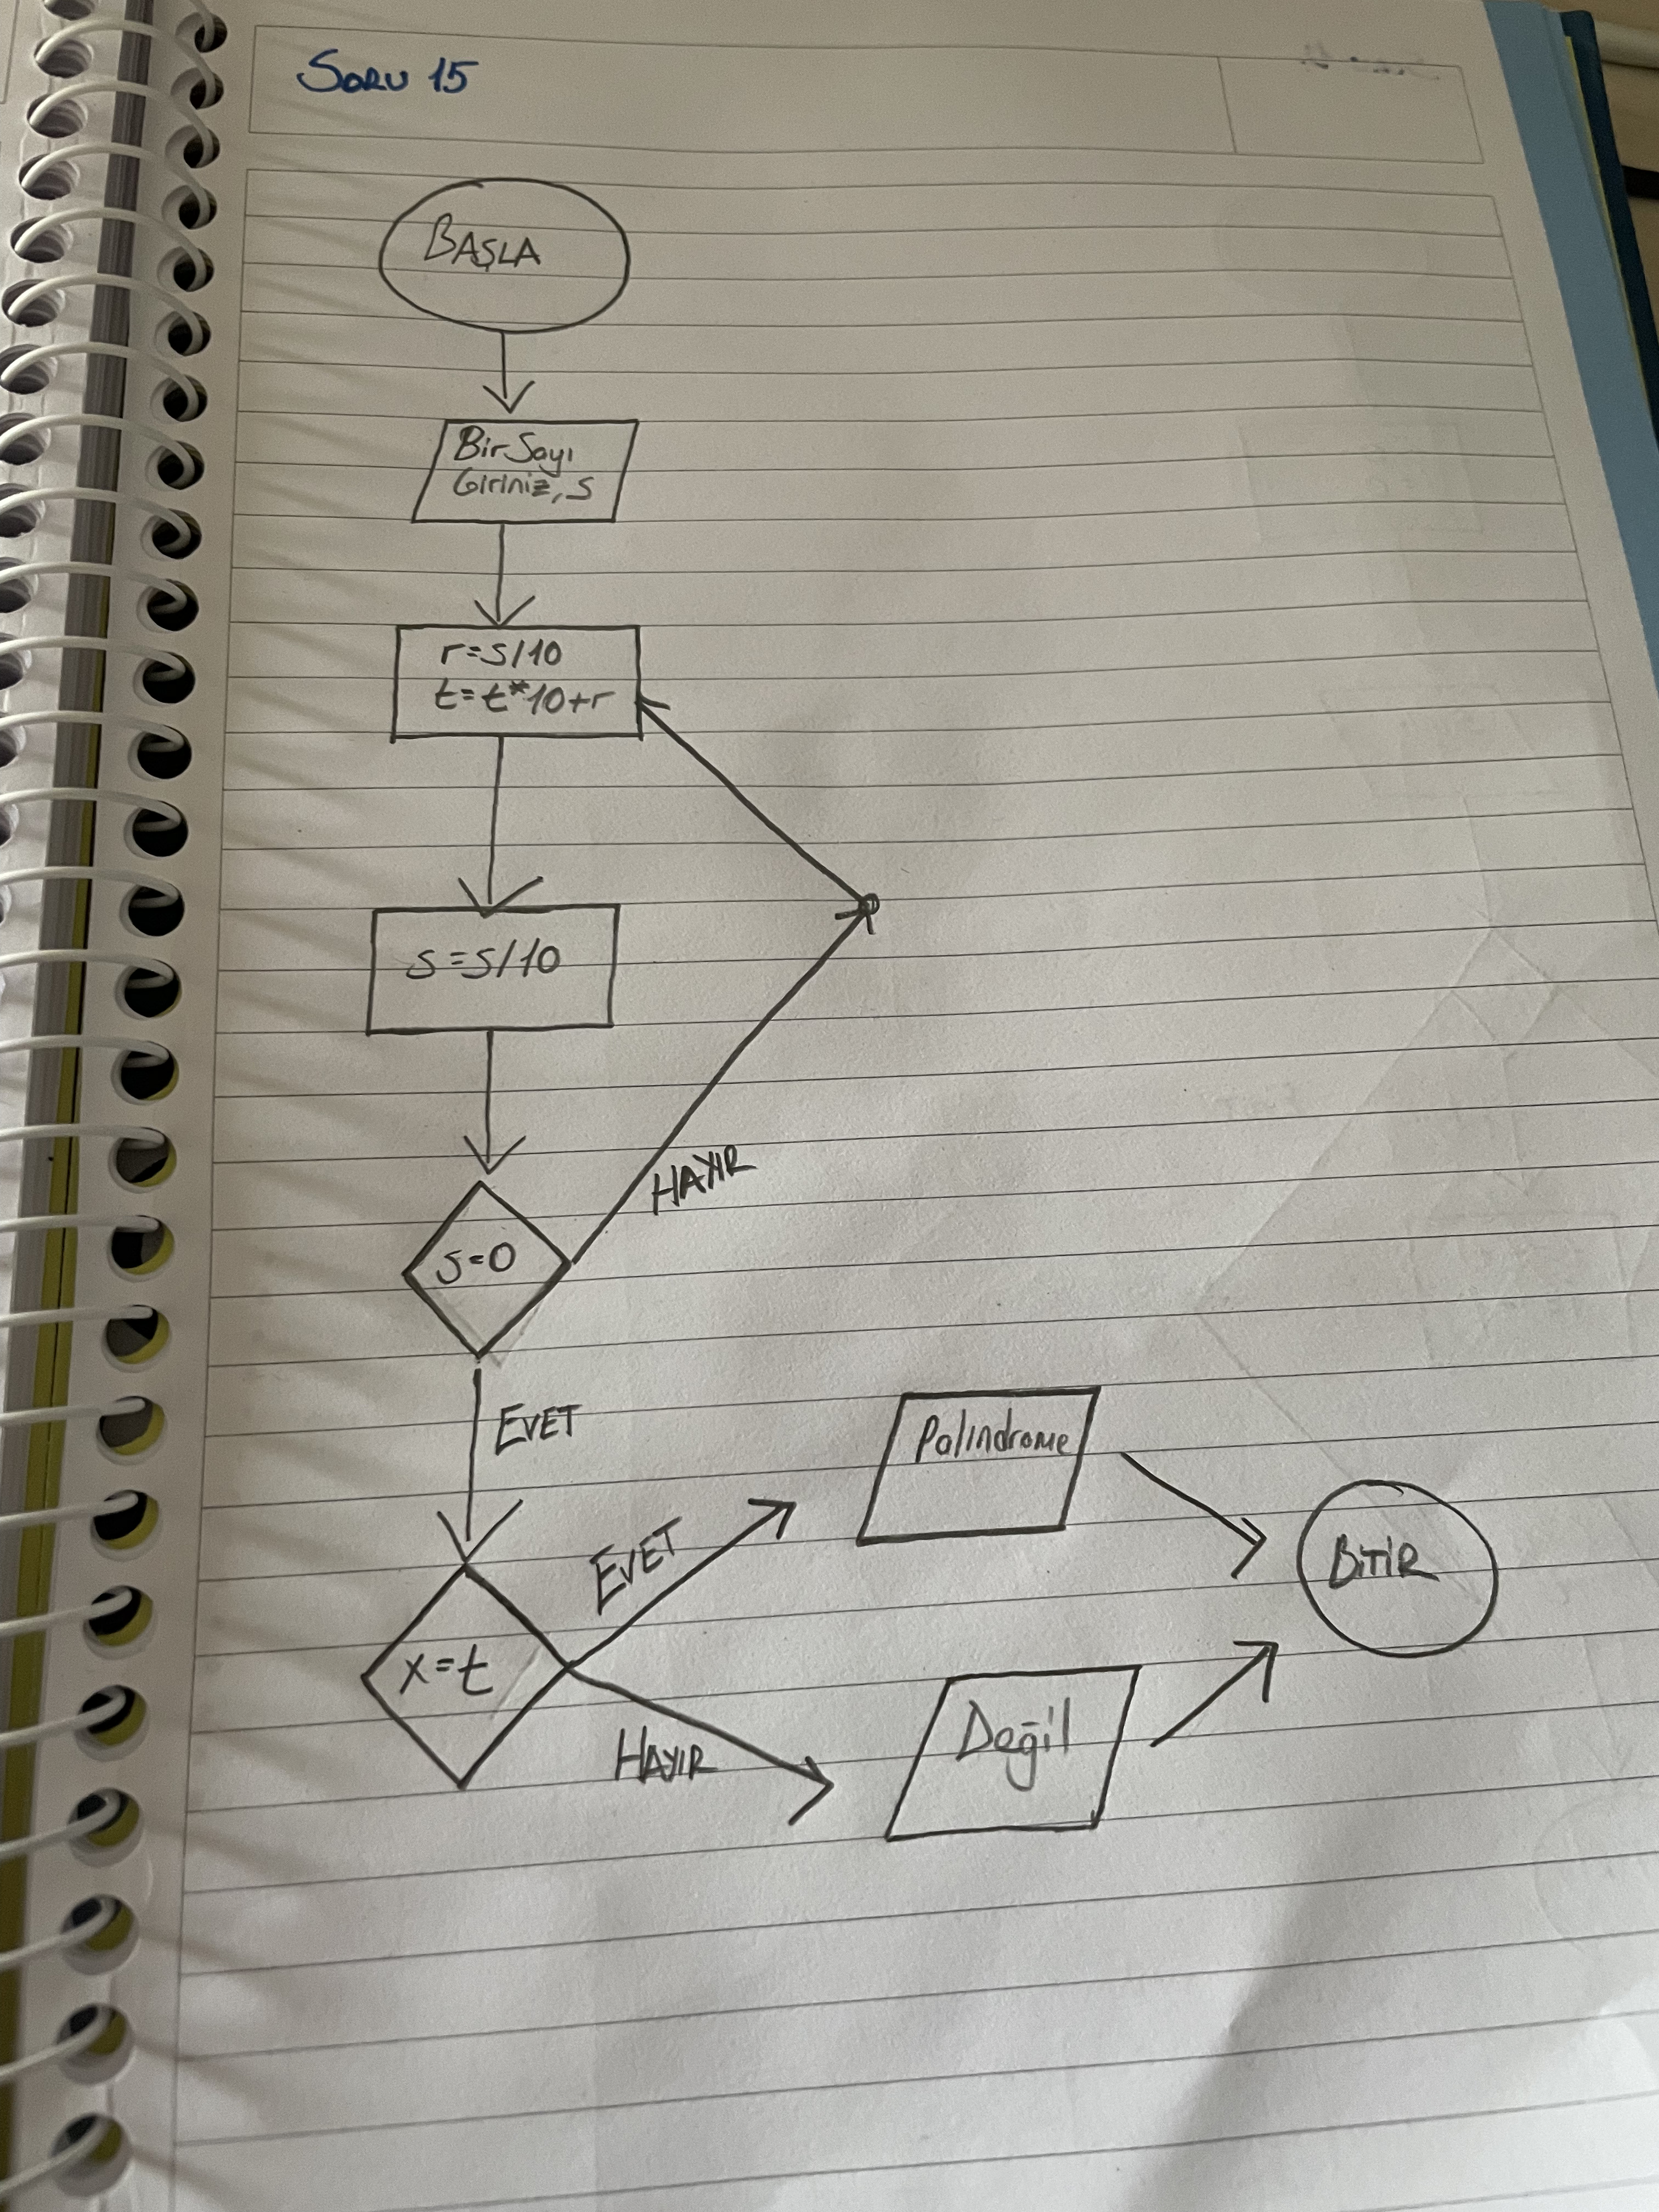 SORU 15
BAŞLA
Bir Sayı
Giriniz, S
r=S/10
t=t*10+r
S=S/10
S=0
HAYIR
EVET
x=t
EVET
Palindrome
HAYIR
Değil
BİTİR